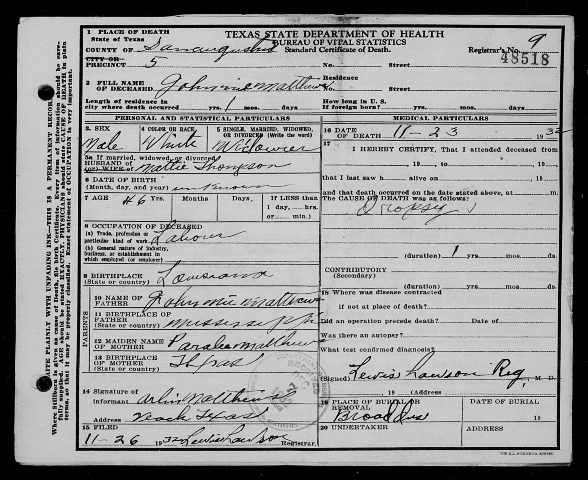 1 PLACE OF DEATH
State of Texas
TEXAS STATE DEPARTMENT OF HEALTH
BUREAU OF VITAL STATISTICS
Standard Certificate of Death.
COUNTY OF Sanaugustine
Registrar's No. 9
48518
CITY OR
PRECINCT 5 No. Street
2 FULL NAME
OF DECEASED. Johnnie Matthews
Residence
No. Street
Length of residence in
city where death occurred yrs. 1 mos. days
How long in U. S.
if of foreign birth? yrs. mos. days
PERSONAL AND STATISTICAL PARTICULARS
MEDICAL PARTICULARS
3. SEX
Male
4 COLOR OR RACE
White
5 SINGLE, MARRIED, WIDOWED,
OR DIVORCED (Write the word)
Widower
5a If married, widowed, or divorced
HUSBAND OF
(or) WIFE OF Mattie Thompson
6 DATE OF BIRTH
(Month, day, and year) unknown
7 AGE 46 Yrs. Months Days
If LESS than
1 day, hrs.
or min.
8 OCCUPATION OF DECEASED
(a) Trade, profession or
particular kind of work Labour
(b) General nature of Industry,
business, or establishment in
which employed (or employer)
9 BIRTHPLACE
(State or country) Louisiana
PARENTS
10 NAME OF
FATHER Johnnie Matthews
11 BIRTHPLACE OF
FATHER
(State or country) Mississippi
12 MAIDEN NAME
OF MOTHER Paralee Matthews
13 BIRTHPLACE
OF MOTHER
(State or country) Texas
14 Signature of
Informant Matthews
Address Texas
15 FILED
11-26 1932 Lewis Lawson Registrar.
16 DATE
OF DEATH 11-23 1932
17
I HEREBY CERTIFY, That I attended deceased from
19 to 19
that I last saw h alive on 19
and that death occurred on the date stated above, at m.
The CAUSE OF DEATH was as follows:
Dropsy
(duration) 1 yrs. mos. ds.
CONTRIBUTORY
(Secondary)
(duration) yrs. mos. ds.
18 Where was disease contracted
if not at place of death?
Did an operation precede death? Date of
Was there an autopsy?
What test confirmed diagnosis?
(Signed) Lewis Lawson Reg, M. D.
19 (Address)
19 PLACE OF BURIAL OR
REMOVAL
Broaddus
DATE OF BURIAL
19
20 UNDERTAKER
Address